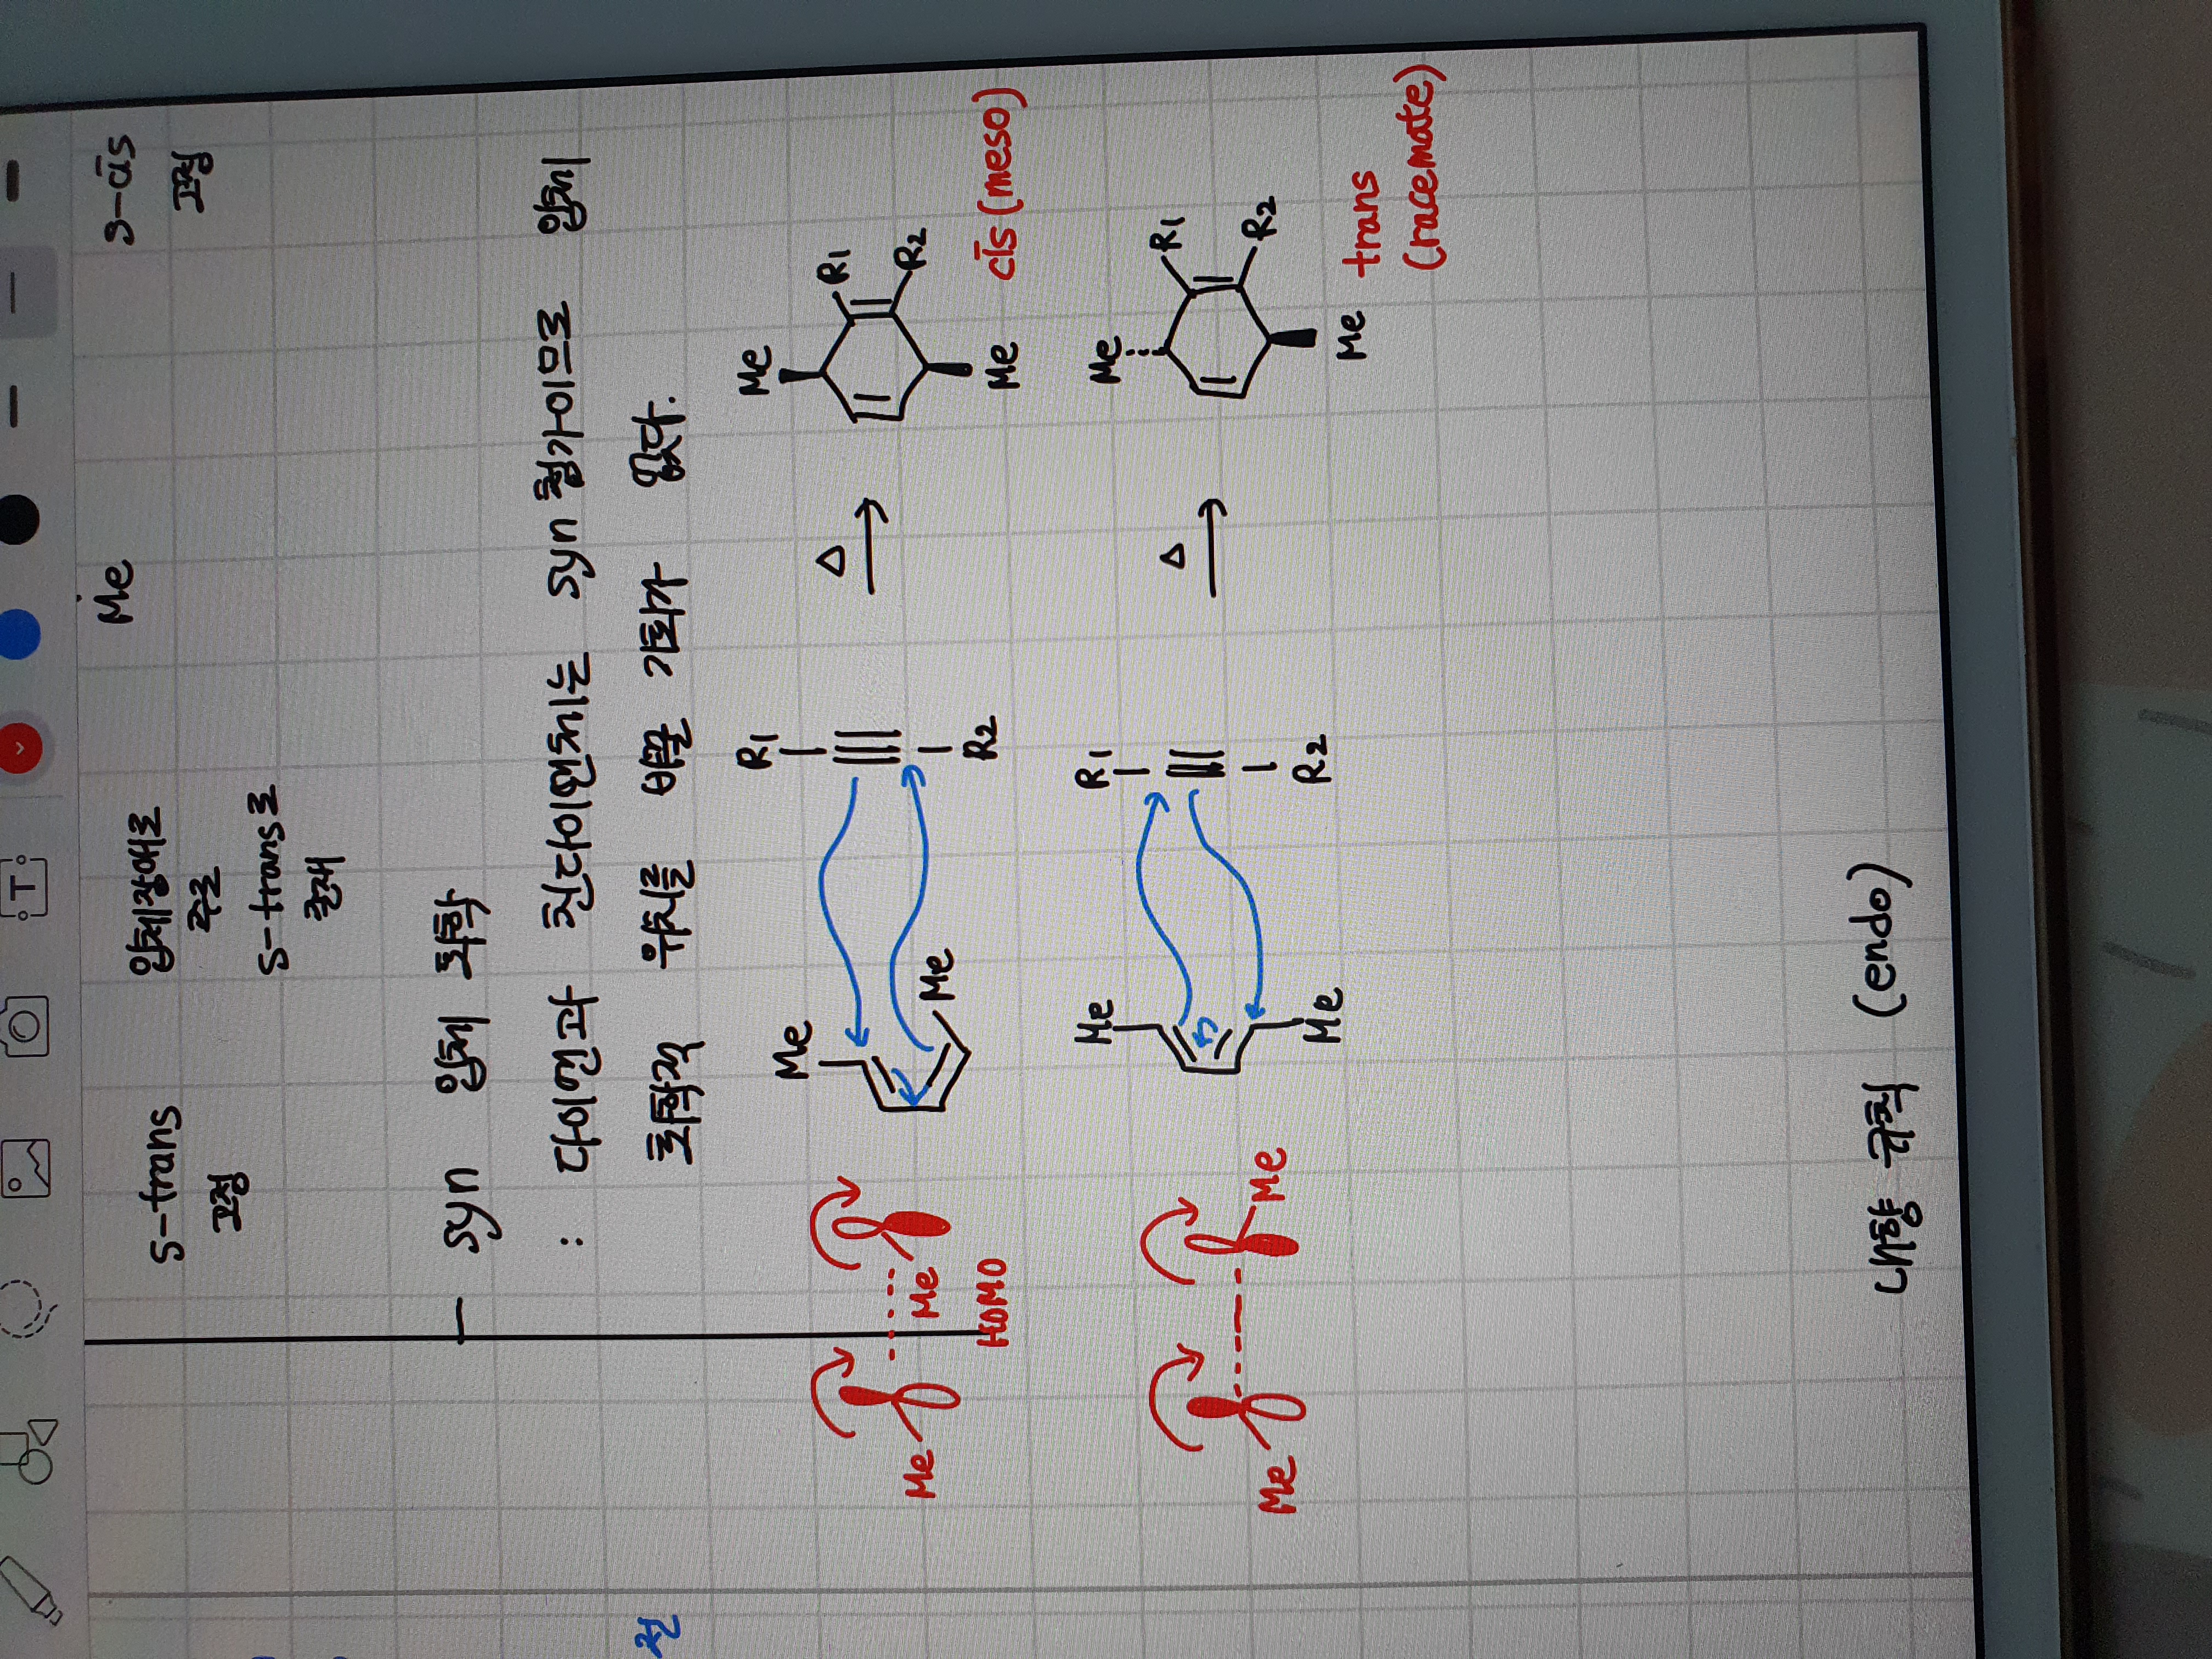 S-trans
고정
입체장애로
주로
S-trans로
존재
Me
S-cis
고정
- syn 입체 화학
: 다이엔과 친다이엔체는 syn 첨가이므로 입체
화학적 위치를 바꿀 기회가 없다.
전
Me
Me
HOMO
Me
Me
R1
R2
Δ
Me
R1
R2
Me
cis (meso)
Me
Me
Me
Me
R1
R2
Δ
Me
R1
R2
Me
trans
(racemate)
내향 규칙 (endo)
T